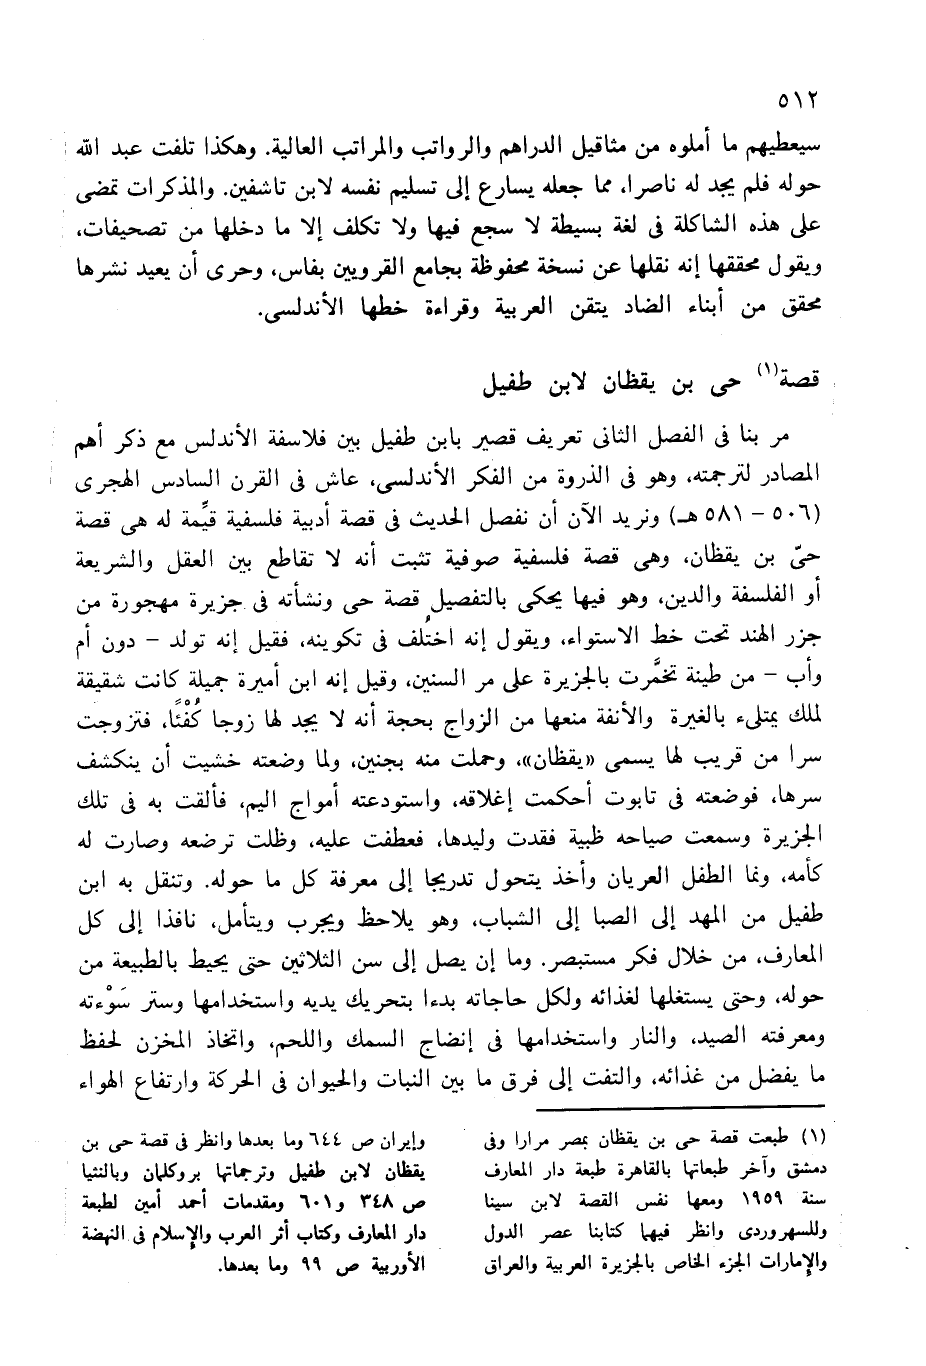 ٥١٢
سيعطيهم ما أملوه من مثاقيل الدراهم والرواتب والمراتب العالية. وهكذا تلفت عبد الله
حوله فلم يجد له ناصرا، مما جعله يسارع إلى تسليم نفسه لابن تاشفين. والمذكرات تمضى
على هذه الشاكلة فى لغة بسيطة لا سجع فيها ولا تكلف إلا ما دخلها من تصحيفات،
ويقول محققها إنه نقلها عن نسخة محفوظة بجامع القرويين بفاس، وحرى أن يعيد نشرها
محقق من أبناء الضاد يتقن العربية وقراءة خطها الأندلسى.
قصة(١) حى بن يقظان لابن طفيل
مر بنا فى الفصل الثانى تعريف قصير بابن طفيل بين فلاسفة الأندلس مع ذكر أهم
المصادر لترجمته، وهو فى الذروة من الفكر الأندلسى، عاش فى القرن السادس الهجرى
(٥٠٦ – ٥٨١ هـ) ونريد الآن أن نفصل الحديث فى قصة أدبية فلسفية قيِّمة له هى قصة
حىّ بن يقظان، وهى قصة فلسفية صوفية تثبت أنه لا تقاطع بين العقل والشريعة
أو الفلسفة والدين، وهو فيها يحكى بالتفصيل قصة حى ونشأته فى جزيرة مهجورة من
جزر الهند تحت خط الاستواء، ويقول إنه اختُلف فى تكوينه، فقيل إنه تولد – دون أم
وأب – من طينة تخمَّرت بالجزيرة على مر السنين، وقيل إنه ابن أميرة جميلة كانت شقيقة
لملك يمتلىء بالغيرة والأنفة منعها من الزواج بحجة أنه لا يجد لها زوجا كُفْئًا، فتزوجت
سرا من قريب لها يسمى «يقظان»، وحملت منه بجنين، ولما وضعته خشيت أن ينكشف
سرها، فوضعته فى تابوت أحكمت إغلاقه، واستودعته أمواج اليم، فألقت به فى تلك
الجزيرة وسمعت صياحه ظبية فقدت وليدها، فعطفت عليه، وظلت ترضعه وصارت له
كأمه، ونما الطفل العريان وأخذ يتحول تدريجا إلى معرفة كل ما حوله. وتنقل به ابن
طفيل من المهد إلى الصبا إلى الشباب، وهو يلاحظ ويجرب ويتأمل، نافذا إلى كل
المعارف، من خلال فكر مستبصر. وما إن يصل إلى سن الثلاثين حتى يحيط بالطبيعة من
حوله، وحتى يستغلها لغذائه ولكل حاجاته بدءا بتحريك يديه واستخدامها وستر سَوْءته
ومعرفته الصيد، والنار واستخدامها فى إنضاج السمك واللحم، واتخاذ المخزن لحفظ
ما يفضل من غذائه، والتفت إلى فرق ما بين النبات والحيوان فى الحركة وارتفاع الهواء
(١) طبعت قصة حى بن يقظان بمصر مرارا وفى
دمشق وآخر طبعاتها بالقاهرة طبعة دار المعارف
سنة ١٩٥٩ ومعها نفس القصة لابن سينا
وللسهروردى وانظر فيهما كتابنا عصر الدول
والإمارات الجزء الخاص بالجزيرة العربية والعراق
وإيران ص ٦٤٤ وما بعدها وانظر فى قصة حى بن
يقظان لابن طفيل وترجماتها بروكلمان وبالنثيا
ص ٣٤٨ و٦٠١ ومقدمات أحمد أمين لطبعة
دار المعارف وكتاب أثر العرب والإسلام فى النهضة
الأوربية ص ٩٩ وما بعدها.